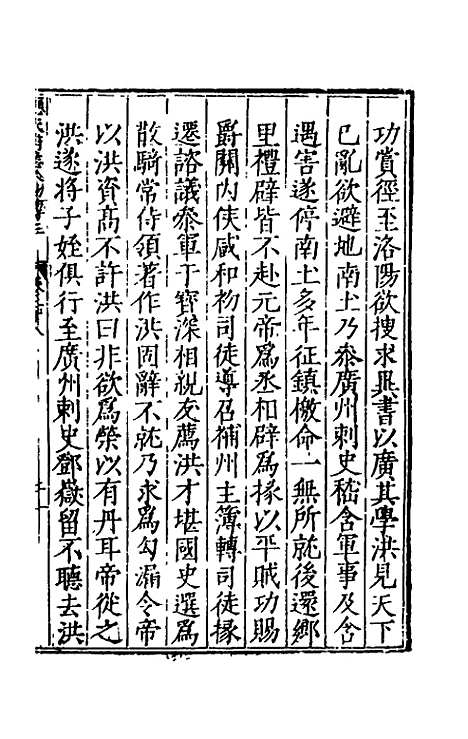 功賞徑至洛陽欲搜求異書以廣其學洪見天下
已亂欲避地南土乃叅廣州刺史嵇含軍事及含
遇害遂停南土多年征鎮檄命一無所就後還鄉
里禮辟皆不赴元帝爲丞相辟爲掾以平賊功賜
爵關內侯咸和初司徒導召補州主簿轉司徒掾
遷諮議叅軍于寶深相親友薦洪才堪國史選爲
散騎常侍領著作洪固辭不就乃求爲勾漏令帝
以洪資髙不許洪曰非欲爲榮以有丹耳帝從之
洪遂將子姪俱行至廣州刺史鄧嶽留不聽去洪